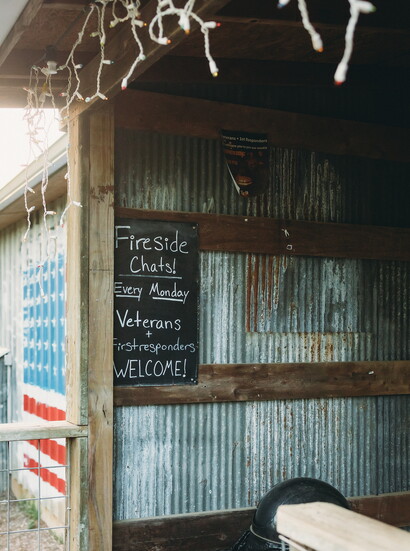 Fireside
Chats!
Every Monday
Veterans
+
Firstresponders
WELCOME!